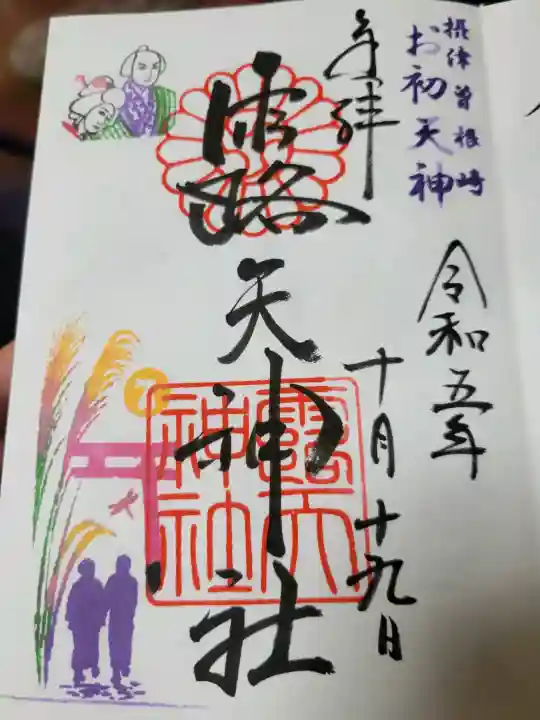 摂津曽根崎
お初天神
奉拝
露天神社
露天
神社
令和五年
十月十九日